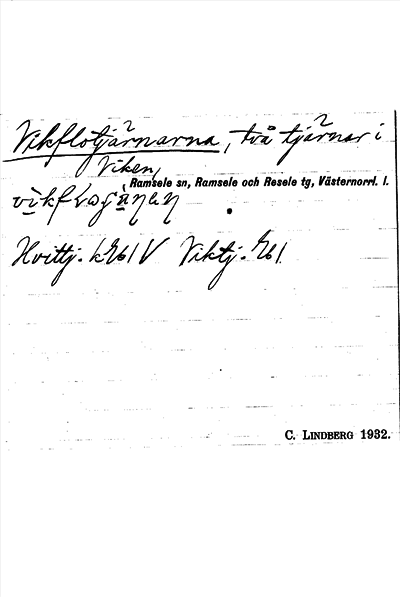 Vikflotjärnarna, två tjärnar i
Viken,
Ramsele sn, Ramsele och Resele tg, Västernorrl. l.
Hvittj. V Viktj.
C. LINDBERG 1932.